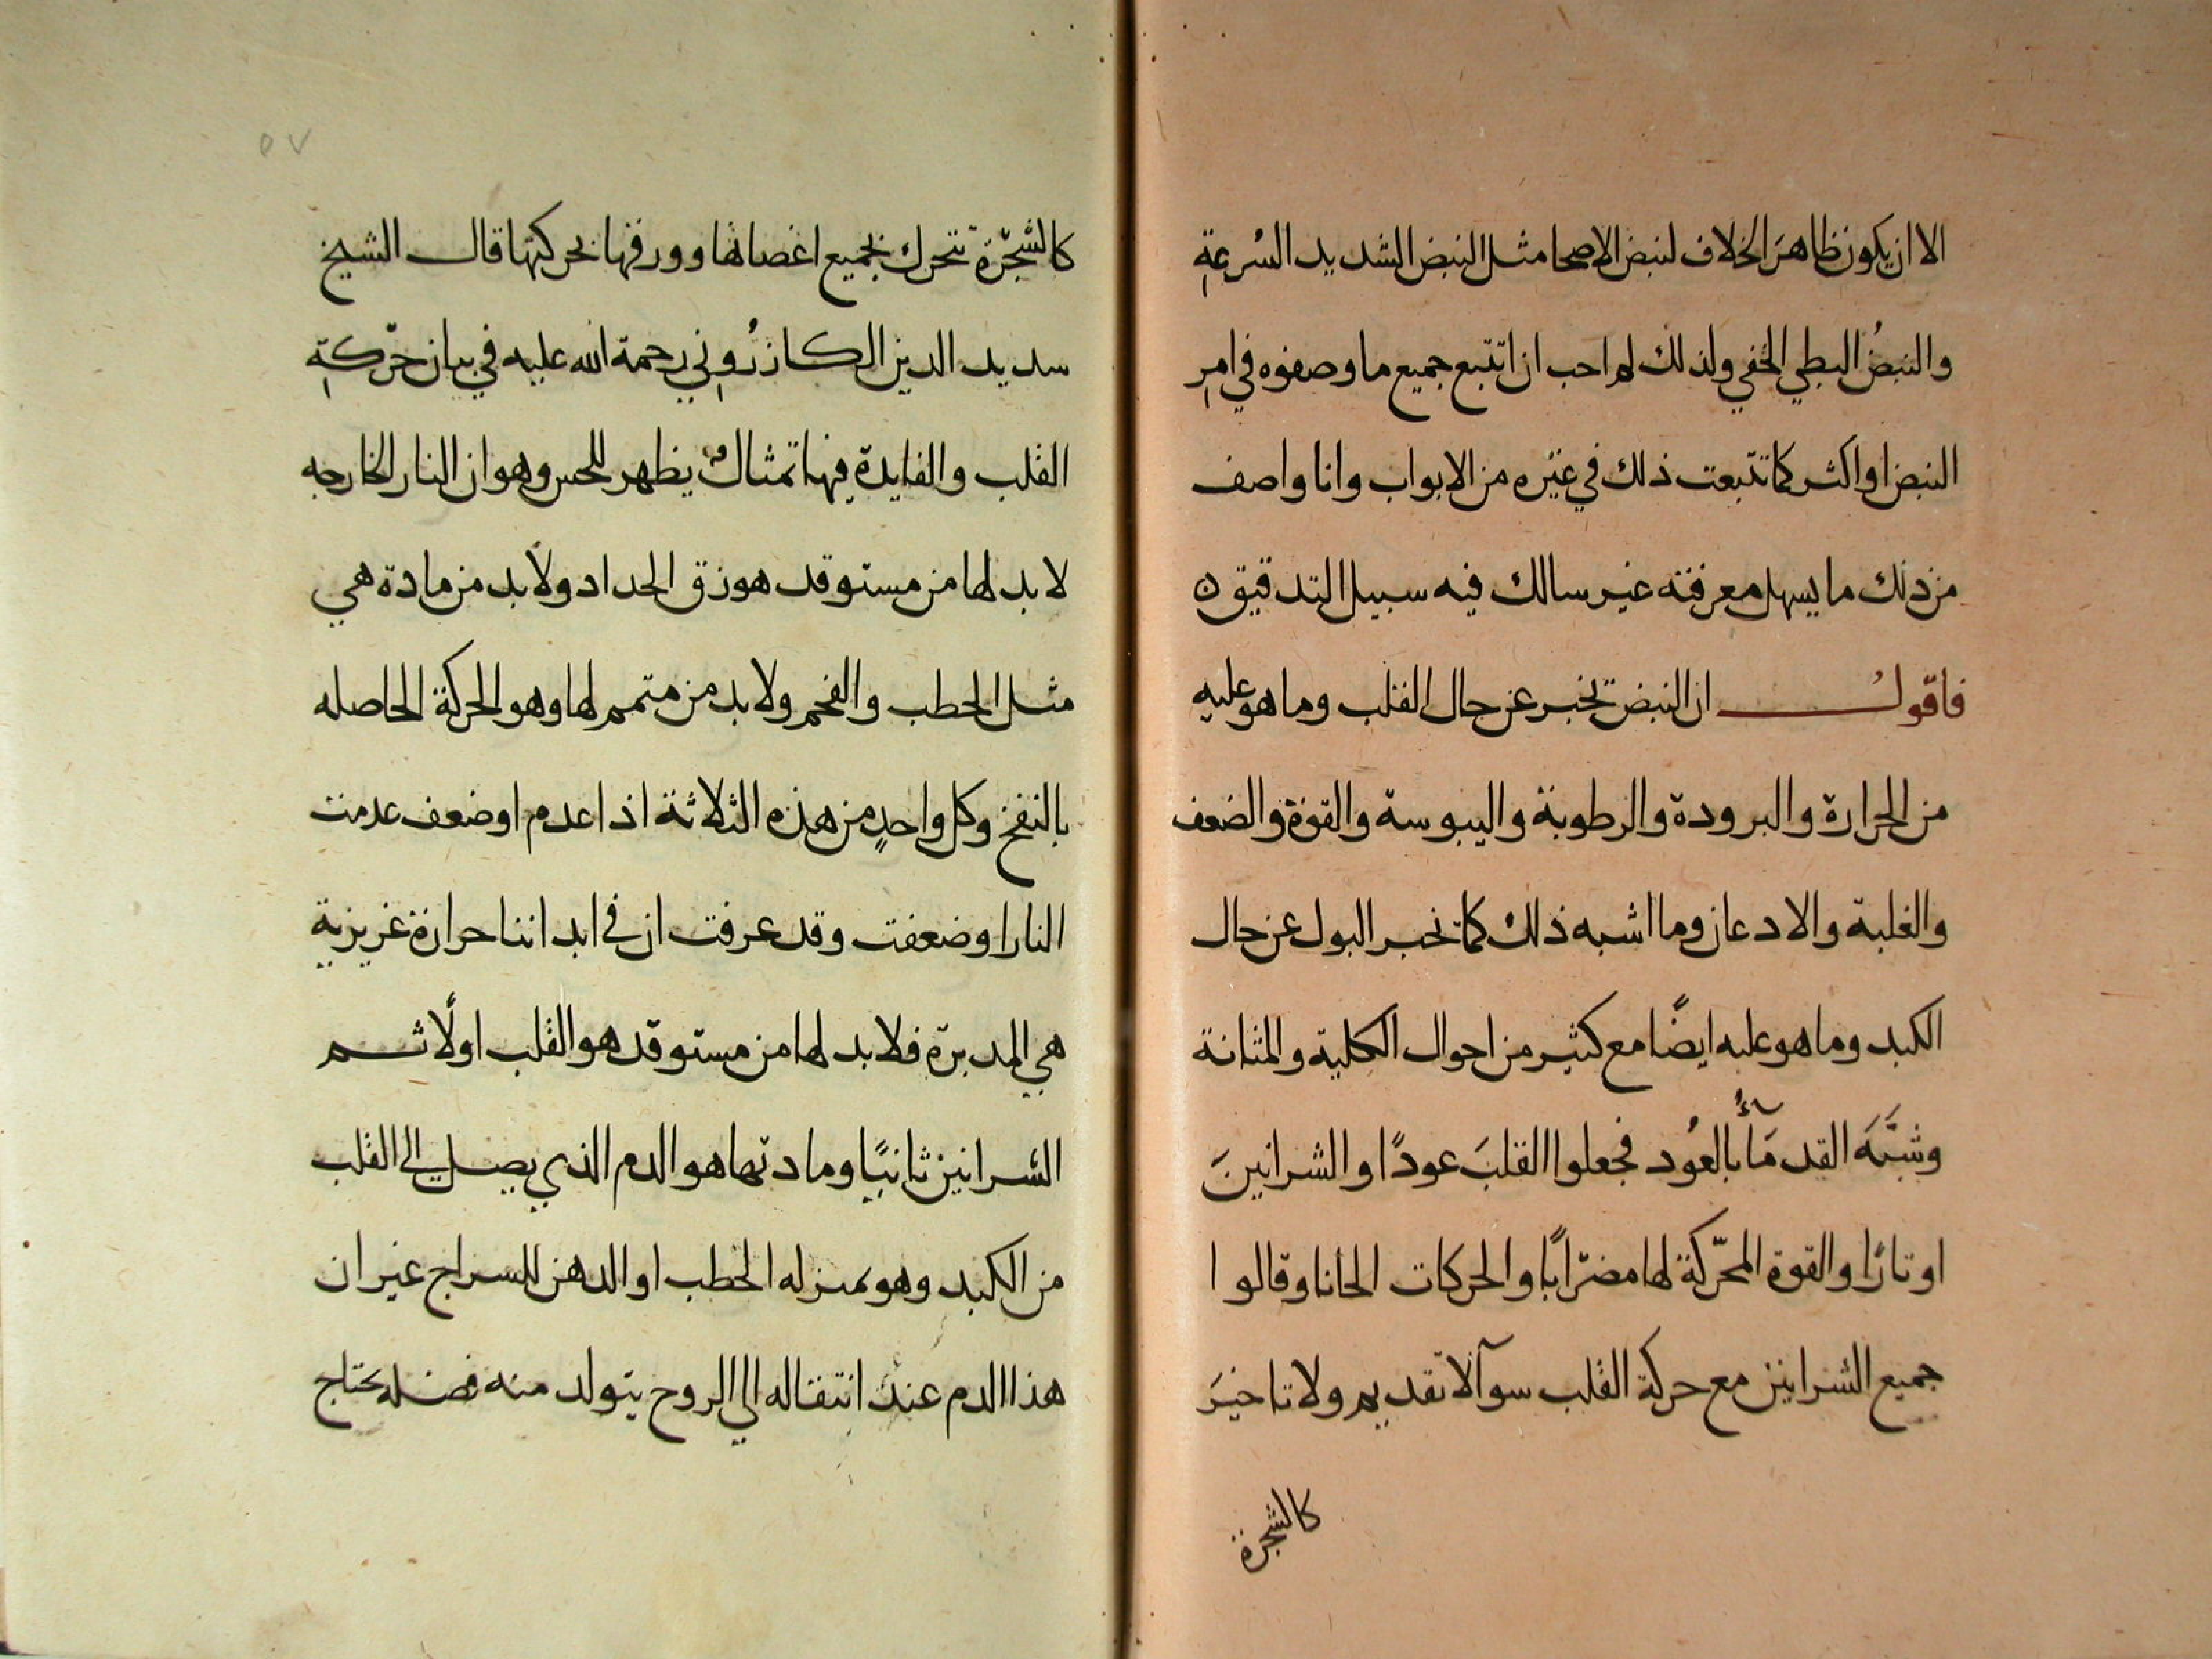 الا ان يكون ظاهرَ الخلاف لنبض الاصحا مثل النبض الشديد السُرعةِ
والنبضُ البطي الخفي ولذلك لم احب ان اتتبع جميع ما وصفوه في امرِ
النبض او اكثر كما تتبعت ذلك في غيره من الابواب وانا واصف
من ذلك ما يسهل معرفته غير سالك فيه سبيل التدقيق ه
فاقولُ ان النبض تخبر عن حال القلب وما هو عليه
من الحرارة والبرودة والرطوبة واليبوسة والقوة والضعف
والغلبة والادعان وما اشبه ذلك كما تخبر البول عن حال
الكبد وما هو عليه ايضًا مع كثير من احوال الكلية والمثانة
وشبَّهَ القدمَآءُ بالعُود فجعلوا القلبَ عودًا والشرانينَ
اوتارًا والقوة المحرّكة لها مضرابًا والحركات الحانا وقالوا
جميع الشرانين مع حركة القلب سوآ لا تقديم ولا تاخيرَ
كالشجرة
٥٧
كالشجرة تتحرك بجميع اغصانها وورقها بحركتها قال الشيخ
سديد الدين الكازرُوني رحمة الله عليه في بيان حرَكةِ
القلب والفايدة فيها تمثالٌ يظهر للحس وهو ان النار الخارجه
لا بد لها من مستوقد هو زق الحداد ولا بد من مادة هي
مثل الحطب والفحم ولا بد من متمم لها وهو الحركة الحاصله
بالنفخ وكل واحدٍ من هذه الثلاثة اذا عدم او ضعف عدمت
النار او ضعفت وقد عرفت ان في ابداننا حرارة غريزية
هي المدبرة فلا بد لها من مستوقد هو القلب اولًا ثم
الشرانين ثانيًا ومادتها هو الدم الذي يصل الي القلب
من الكبد وهو بمنزله الحطب او الدهن للسراج غير ان
هذا الدم عند انتقاله الي الروح يتولد منه فضله تحتاج